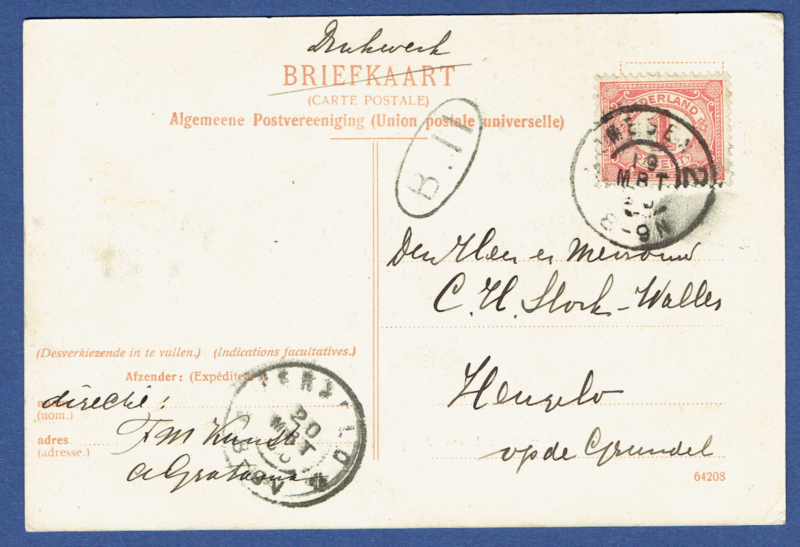 Drukwerk
BRIEFKAART
(CARTE POSTALE)
Algemeene Postvereeniging (Union postale universelle)
B.11
NEDERLAND
1
19
MRT
8-9N
2
Den Heer en Mevrouw
C. H. Stork-Walles
Hengelo
op de Grundel
(Desverkiezende in te vullen.) (Indications facultatives.)
Afzender: (Expéditeur
directie:
(nom.)
FM Kunst
adres.
(adresse.)
20
MRT
64208